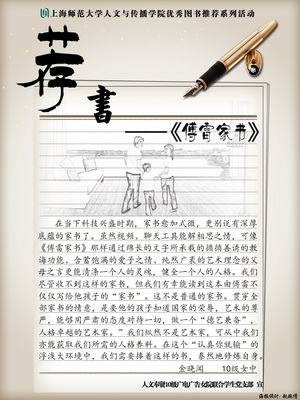 上海师范大学人文与传播学院优秀图书推荐系列活动
荐
書
——《傅雷家书》
在当下科技兴盛时期，家书愈加式微，更别说有深厚
底蕴的家书了。虽然视频、聊天工具能解相思之情，可像
《傅雷家书》那样通过绵长的文字所承载的循循善诱的教
诲功能，含蓄饱满的爱子之情，纯然广袤的艺术理念的父
母之言更能清涤一个人的灵魂，健全一个人的人格。我们
尽管收不到这样的家书，但我们有幸能读到这本由傅雷不
仅仅写给他孩子的“家书”。这不是普通的家书。贯穿全
部家书的情意，是要他的孩子知道国家的荣辱，艺术的尊
严，能够用严肃的态度对待一切，做一个“德艺兼备”，
人格卓越的艺术家。”我们纵然不是艺术家，可从中我们
亦能获取我们所需的人格养料。在这个“认真你就输”的
浮浅大环境中，我们需要捧着这样的书，泰然地修炼自身。
金晓闻 10级女中
人文奉贤10级广电广告女院联合学生党支部 宣